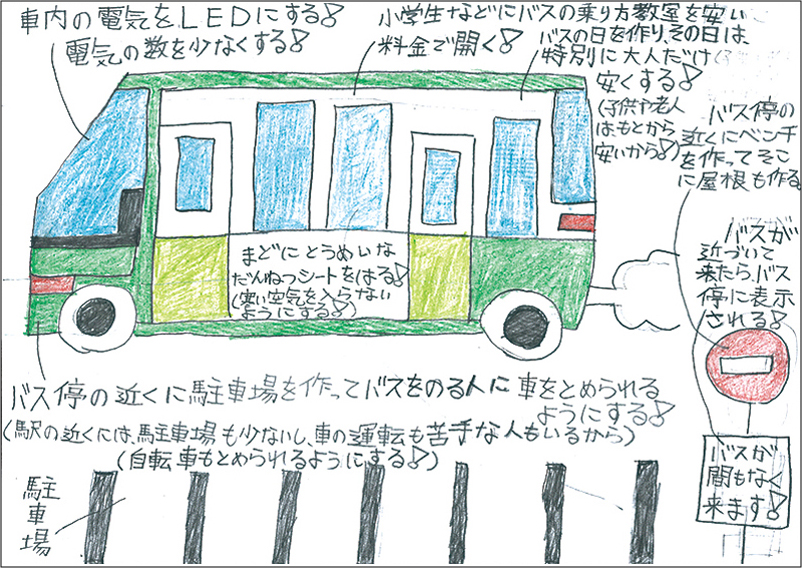 車内の電気をLEDにする!
電気の数を少なくする!
小学生などにバスの乗り方教室を安い
料金で開く!
バスの日を作り、その日は、
特別に大人だけ
安くする!
(子供や老人
はもとから
安いから!)
バス停の
近くにベンチ
を作ってそこ
に屋根も作る
まどにとうめいな
だんねつシートをはる!
(寒い空気を入らない
ようにする!)
バスが
近づいて
来たら、バス
停に表示
される!
バス停の近くに駐車場を作ってバスをのる人に車をとめられる
ようにする!
(駅の近くには、駐車場も少ないし、車の運転も苦手な人もいるから)
(自転車もとめられるようにする!)
駐
車
場
バスが
間もなく
来ます!